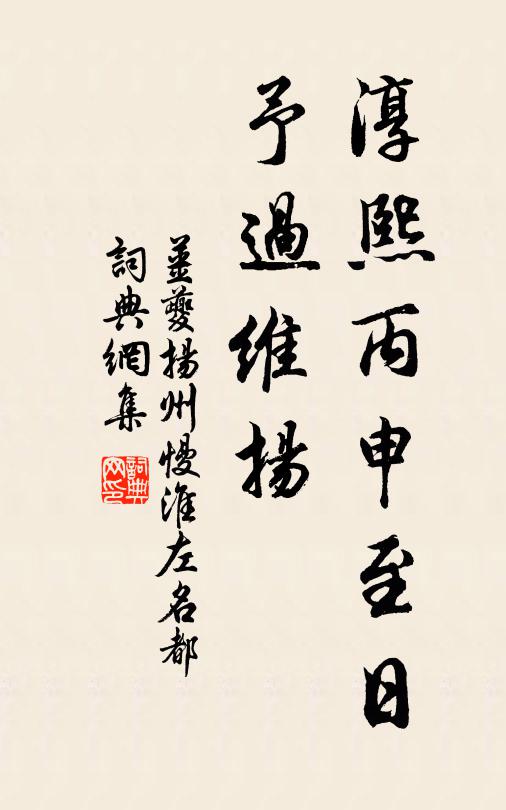 淳熙丙申至日
予過維揚
姜夔揚州慢淮左名都
詞典網集
詞典網印